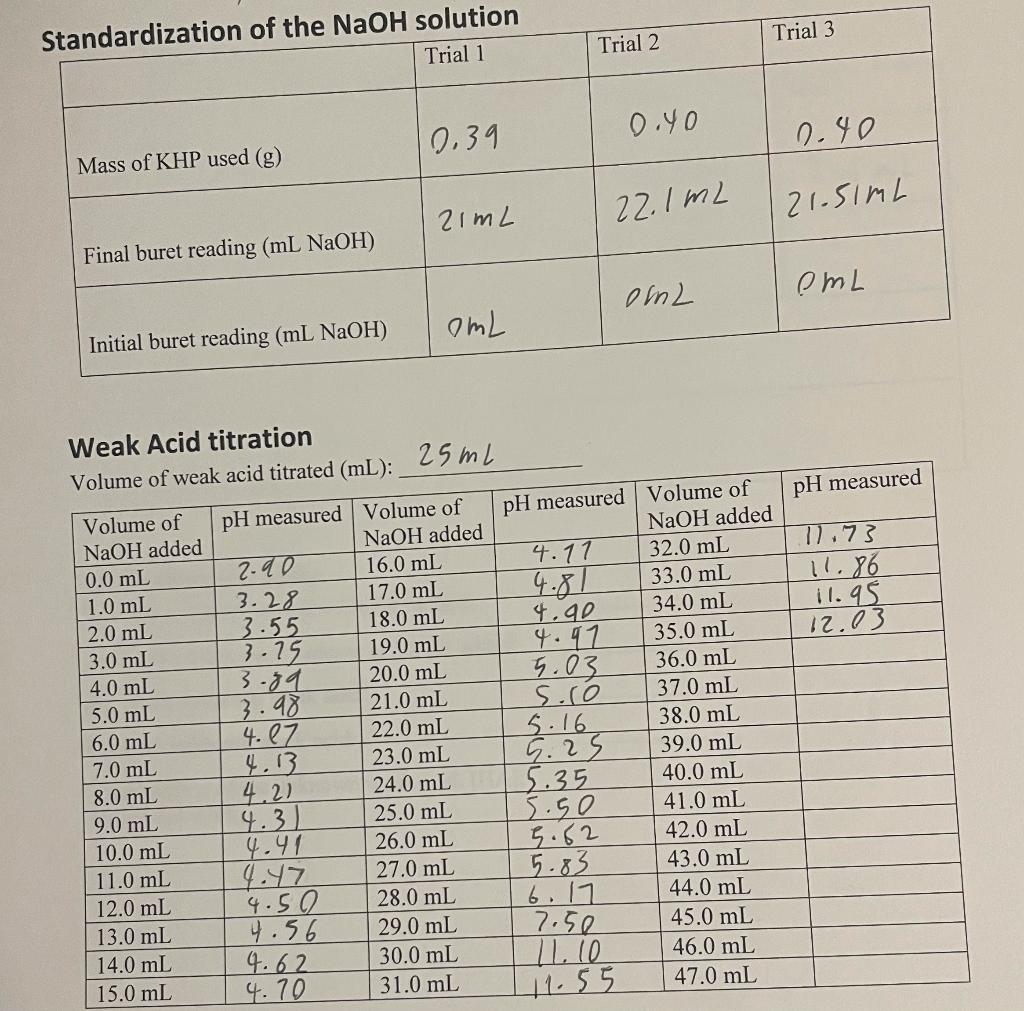 Standardization of the NaOH solution
Trial 1 Trial 2 Trial 3
Mass of KHP used (g) 0.39 0.40 0.40
Final buret reading (mL NaOH) 21mL 22.1mL 21.51mL
Initial buret reading (mL NaOH) 0mL 0mL 0mL
Weak Acid titration
Volume of weak acid titrated (mL): 25mL
Volume of NaOH added pH measured Volume of NaOH added pH measured Volume of NaOH added pH measured
0.0 mL 2.90 16.0 mL 4.77 32.0 mL 11.73
1.0 mL 3.28 17.0 mL 4.81 33.0 mL 11.86
2.0 mL 3.55 18.0 mL 4.90 34.0 mL 11.95
3.0 mL 3.75 19.0 mL 4.97 35.0 mL 12.03
4.0 mL 3.89 20.0 mL 5.03 36.0 mL
5.0 mL 3.98 21.0 mL 5.10 37.0 mL
6.0 mL 4.07 22.0 mL 5.16 38.0 mL
7.0 mL 4.13 23.0 mL 5.25 39.0 mL
8.0 mL 4.21 24.0 mL 5.35 40.0 mL
9.0 mL 4.31 25.0 mL 5.50 41.0 mL
10.0 mL 4.41 26.0 mL 5.62 42.0 mL
11.0 mL 4.47 27.0 mL 5.83 43.0 mL
12.0 mL 4.50 28.0 mL 6.17 44.0 mL
13.0 mL 4.56 29.0 mL 7.50 45.0 mL
14.0 mL 4.62 30.0 mL 11.10 46.0 mL
15.0 mL 4.70 31.0 mL 11.55 47.0 mL